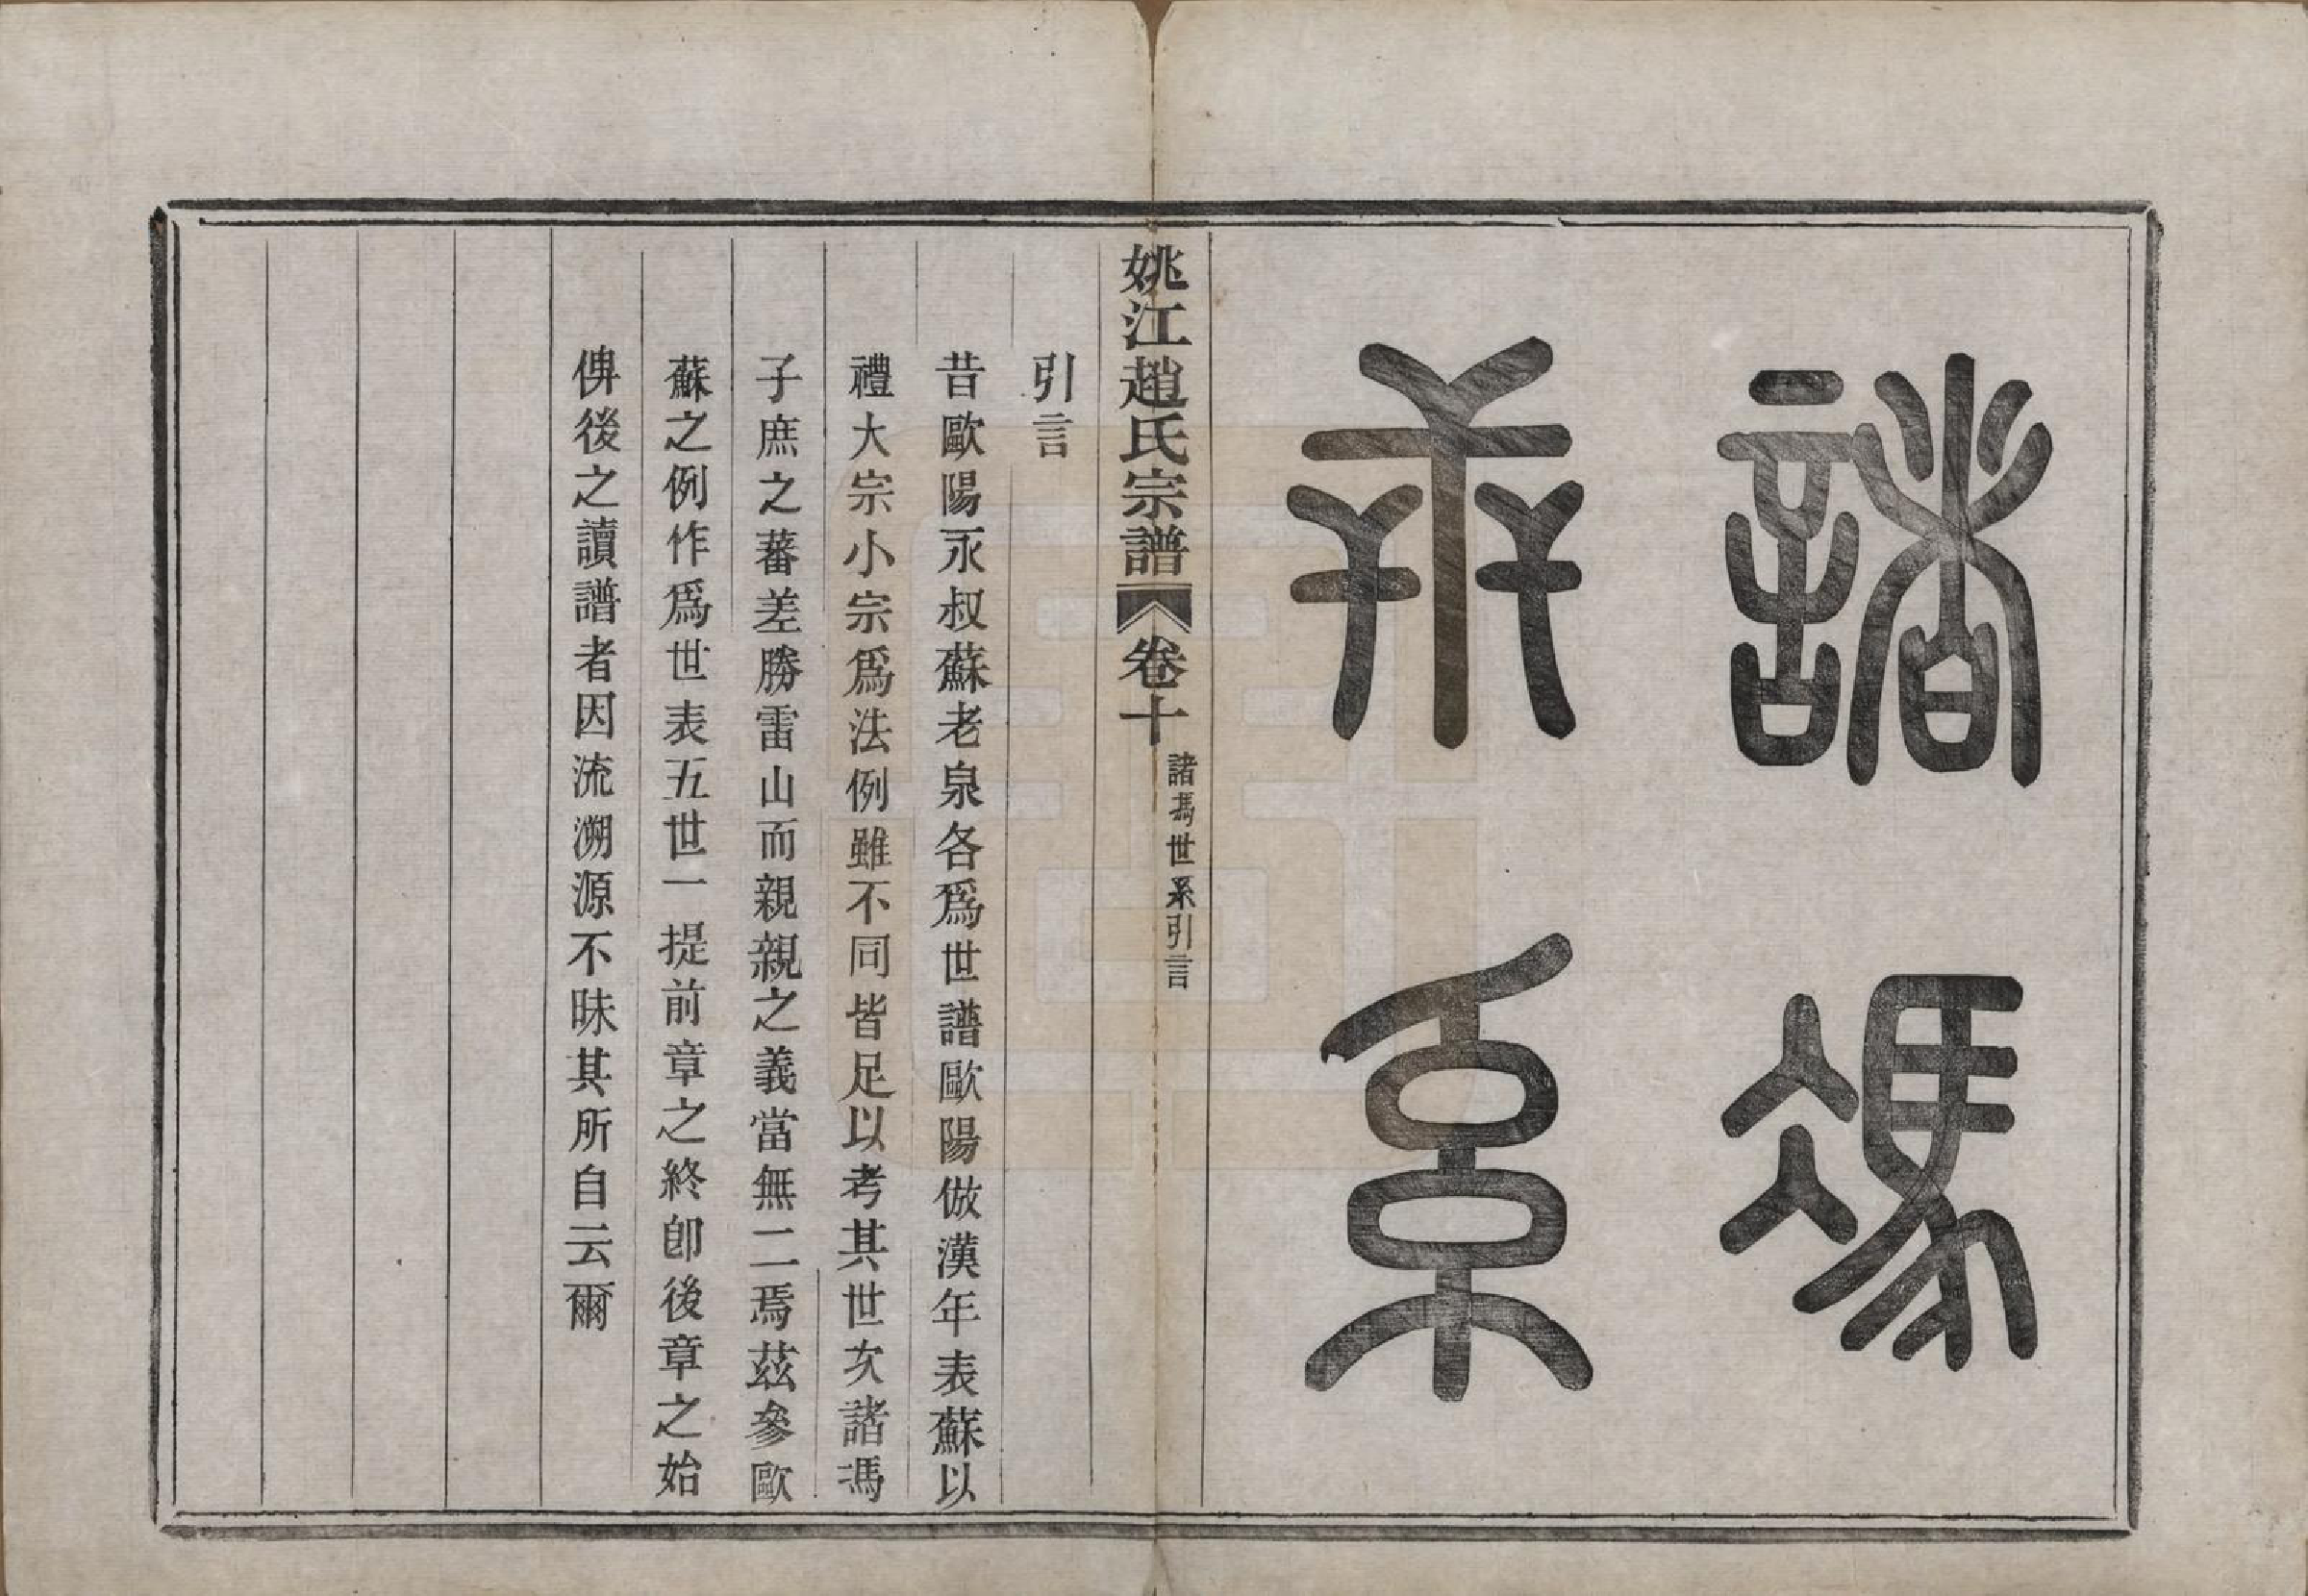 諸馮
世系
姚江趙氏宗譜 卷十 諸馮世系引言
引言
昔歐陽永叔蘇老泉各爲世譜歐陽倣漢年表蘇以
禮大宗小宗爲法例雖不同皆足以考其世次諸馮
子庶之蕃差勝雷山而親親之義當無二焉茲參歐
蘇之例作爲世表五世一提前章之終卽後章之始
俾後之讀譜者因流溯源不昧其所自云爾